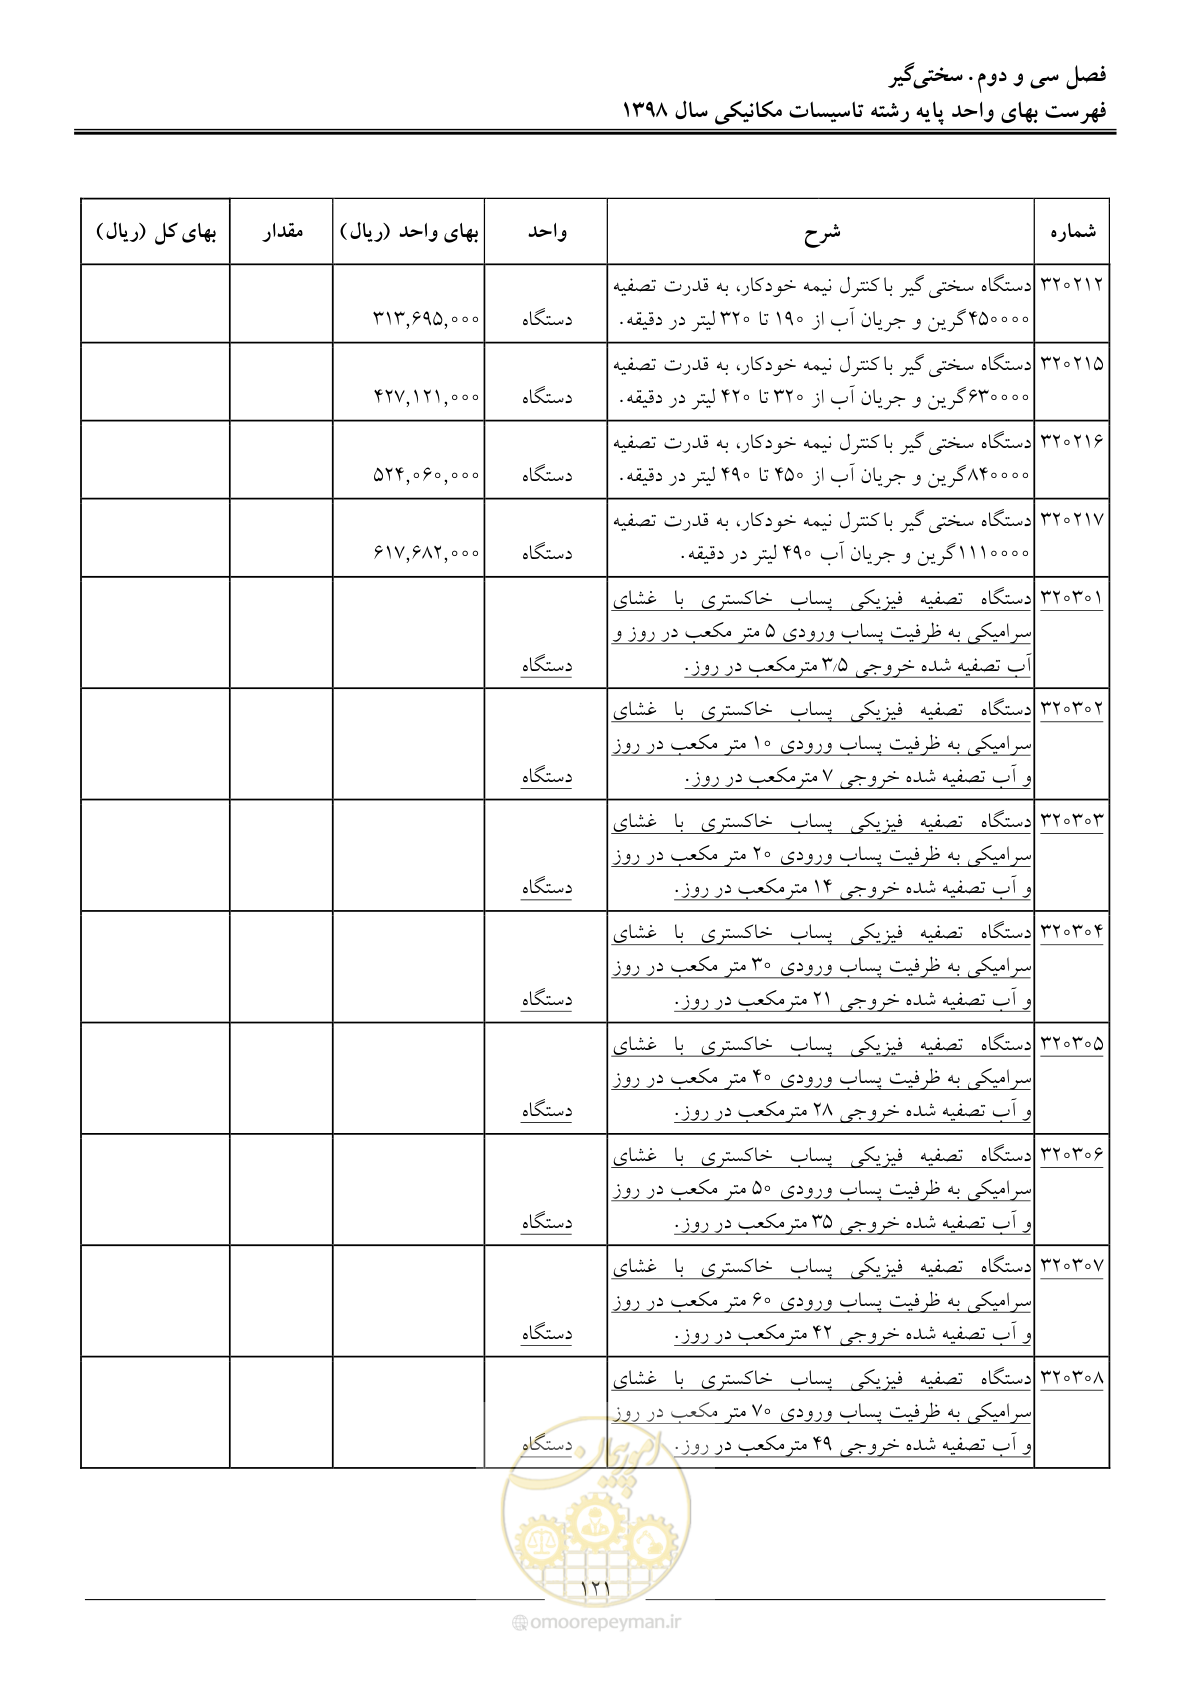 فصل سی و دوم. سختی‌گیر
فهرست بهای واحد پایه رشته تاسیسات مکانیکی سال ۱۳۹۸
شماره شرح واحد بهای واحد (ریال) مقدار بهای کل (ریال)
۳۲۰۲۱۲ دستگاه سختی گیر با کنترل نیمه خودکار، به قدرت تصفیه
۴۵۰۰۰۰گرین و جریان آب از ۱۹۰ تا ۳۲۰ لیتر در دقیقه. دستگاه ۳۱۳,۶۹۵,۰۰۰
۳۲۰۲۱۵ دستگاه سختی گیر با کنترل نیمه خودکار، به قدرت تصفیه
۶۳۰۰۰۰گرین و جریان آب از ۳۲۰ تا ۴۲۰ لیتر در دقیقه. دستگاه ۴۲۷,۱۲۱,۰۰۰
۳۲۰۲۱۶ دستگاه سختی گیر با کنترل نیمه خودکار، به قدرت تصفیه
۸۴۰۰۰۰گرین و جریان آب از ۴۵۰ تا ۴۹۰ لیتر در دقیقه. دستگاه ۵۲۴,۰۶۰,۰۰۰
۳۲۰۲۱۷ دستگاه سختی گیر با کنترل نیمه خودکار، به قدرت تصفیه
۱۱۱۰۰۰۰گرین و جریان آب ۴۹۰ لیتر در دقیقه. دستگاه ۶۱۷,۶۸۲,۰۰۰
۳۲۰۳۰۱ دستگاه تصفیه فیزیکی پساب خاکستری با غشای
سرامیکی به ظرفیت پساب ورودی ۵ متر مکعب در روز و
آب تصفیه شده خروجی ۳٫۵ مترمکعب در روز. دستگاه
۳۲۰۳۰۲ دستگاه تصفیه فیزیکی پساب خاکستری با غشای
سرامیکی به ظرفیت پساب ورودی ۱۰ متر مکعب در روز
و آب تصفیه شده خروجی ۷ مترمکعب در روز. دستگاه
۳۲۰۳۰۳ دستگاه تصفیه فیزیکی پساب خاکستری با غشای
سرامیکی به ظرفیت پساب ورودی ۲۰ متر مکعب در روز
و آب تصفیه شده خروجی ۱۴ مترمکعب در روز. دستگاه
۳۲۰۳۰۴ دستگاه تصفیه فیزیکی پساب خاکستری با غشای
سرامیکی به ظرفیت پساب ورودی ۳۰ متر مکعب در روز
و آب تصفیه شده خروجی ۲۱ مترمکعب در روز. دستگاه
۳۲۰۳۰۵ دستگاه تصفیه فیزیکی پساب خاکستری با غشای
سرامیکی به ظرفیت پساب ورودی ۴۰ متر مکعب در روز
و آب تصفیه شده خروجی ۲۸ مترمکعب در روز. دستگاه
۳۲۰۳۰۶ دستگاه تصفیه فیزیکی پساب خاکستری با غشای
سرامیکی به ظرفیت پساب ورودی ۵۰ متر مکعب در روز
و آب تصفیه شده خروجی ۳۵ مترمکعب در روز. دستگاه
۳۲۰۳۰۷ دستگاه تصفیه فیزیکی پساب خاکستری با غشای
سرامیکی به ظرفیت پساب ورودی ۶۰ متر مکعب در روز
و آب تصفیه شده خروجی ۴۲ مترمکعب در روز. دستگاه
۳۲۰۳۰۸ دستگاه تصفیه فیزیکی پساب خاکستری با غشای
سرامیکی به ظرفیت پساب ورودی ۷۰ متر مکعب در روز
و آب تصفیه شده خروجی ۴۹ مترمکعب در روز. دستگاه
امور پیمان
۱۲۱
omoorepeyman.ir